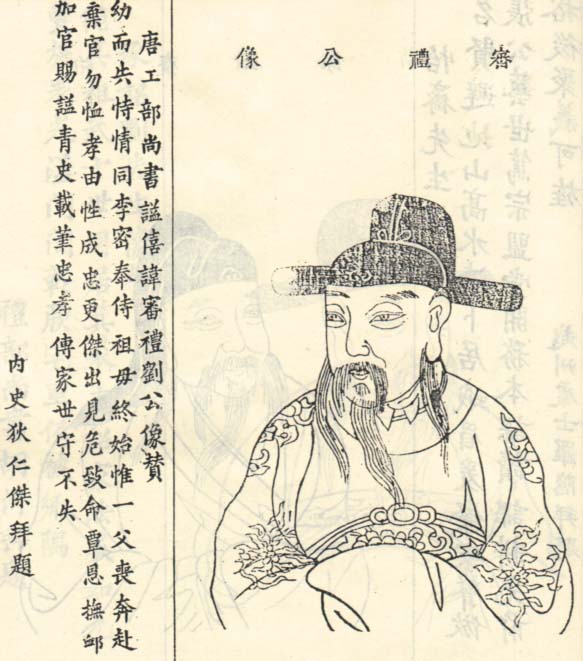 審禮公像
唐工部尚書謚僖諱審禮劉公像贊
幼而失恃情同李密奉侍祖母終始惟一父喪奔赴
棄官勿恤孝由性成忠更傑出見危致命覃恩撫卹
加官賜謚青史載筆忠孝傳家世守不失
内史狄仁傑拜題